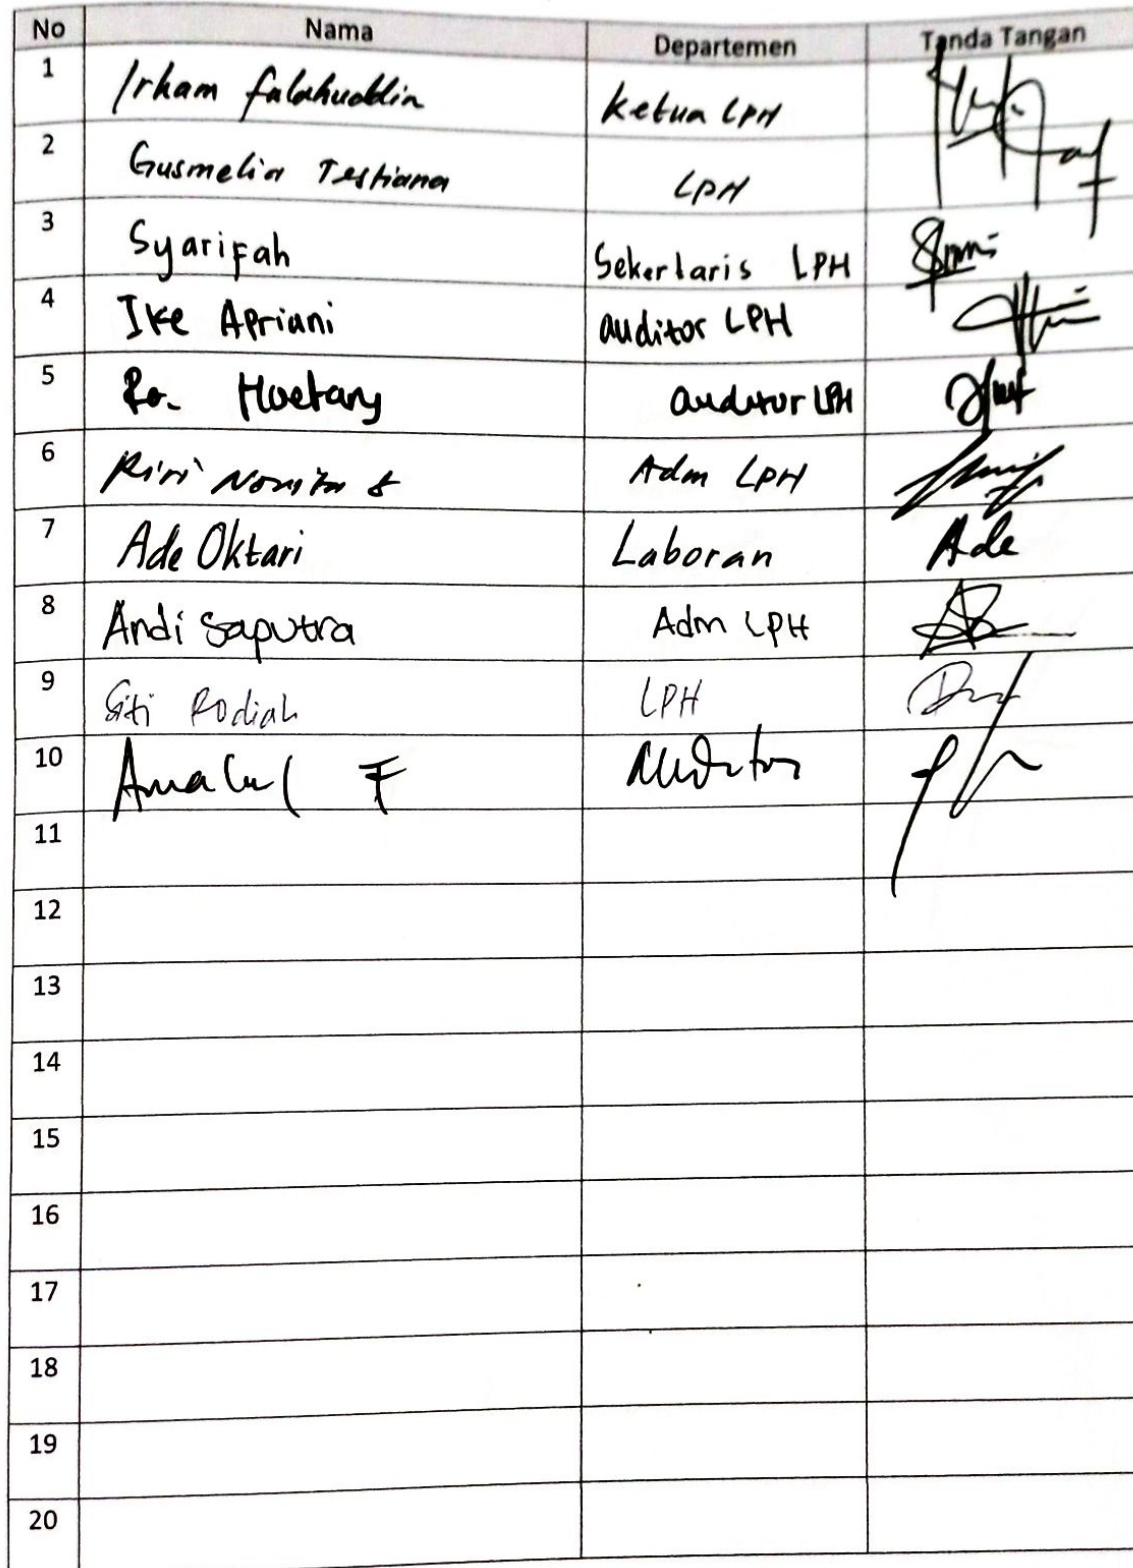 No Nama Departemen Tanda Tangan
1 Irham Falahuddin Ketua LPH
2 Gusmelia Testiana LPH
3 Syarifah Sekertaris LPH
4 Ike Apriani auditor LPH
5 auditor LPH
6 Riri Novita S Adm LPH
7 Ade Oktari Laboran Ade
8 Andi Saputra Adm LPH
9 Siti Rodiah LPH
10 Amalul F Auditor
11
12
13
14
15
16
17
18
19
20